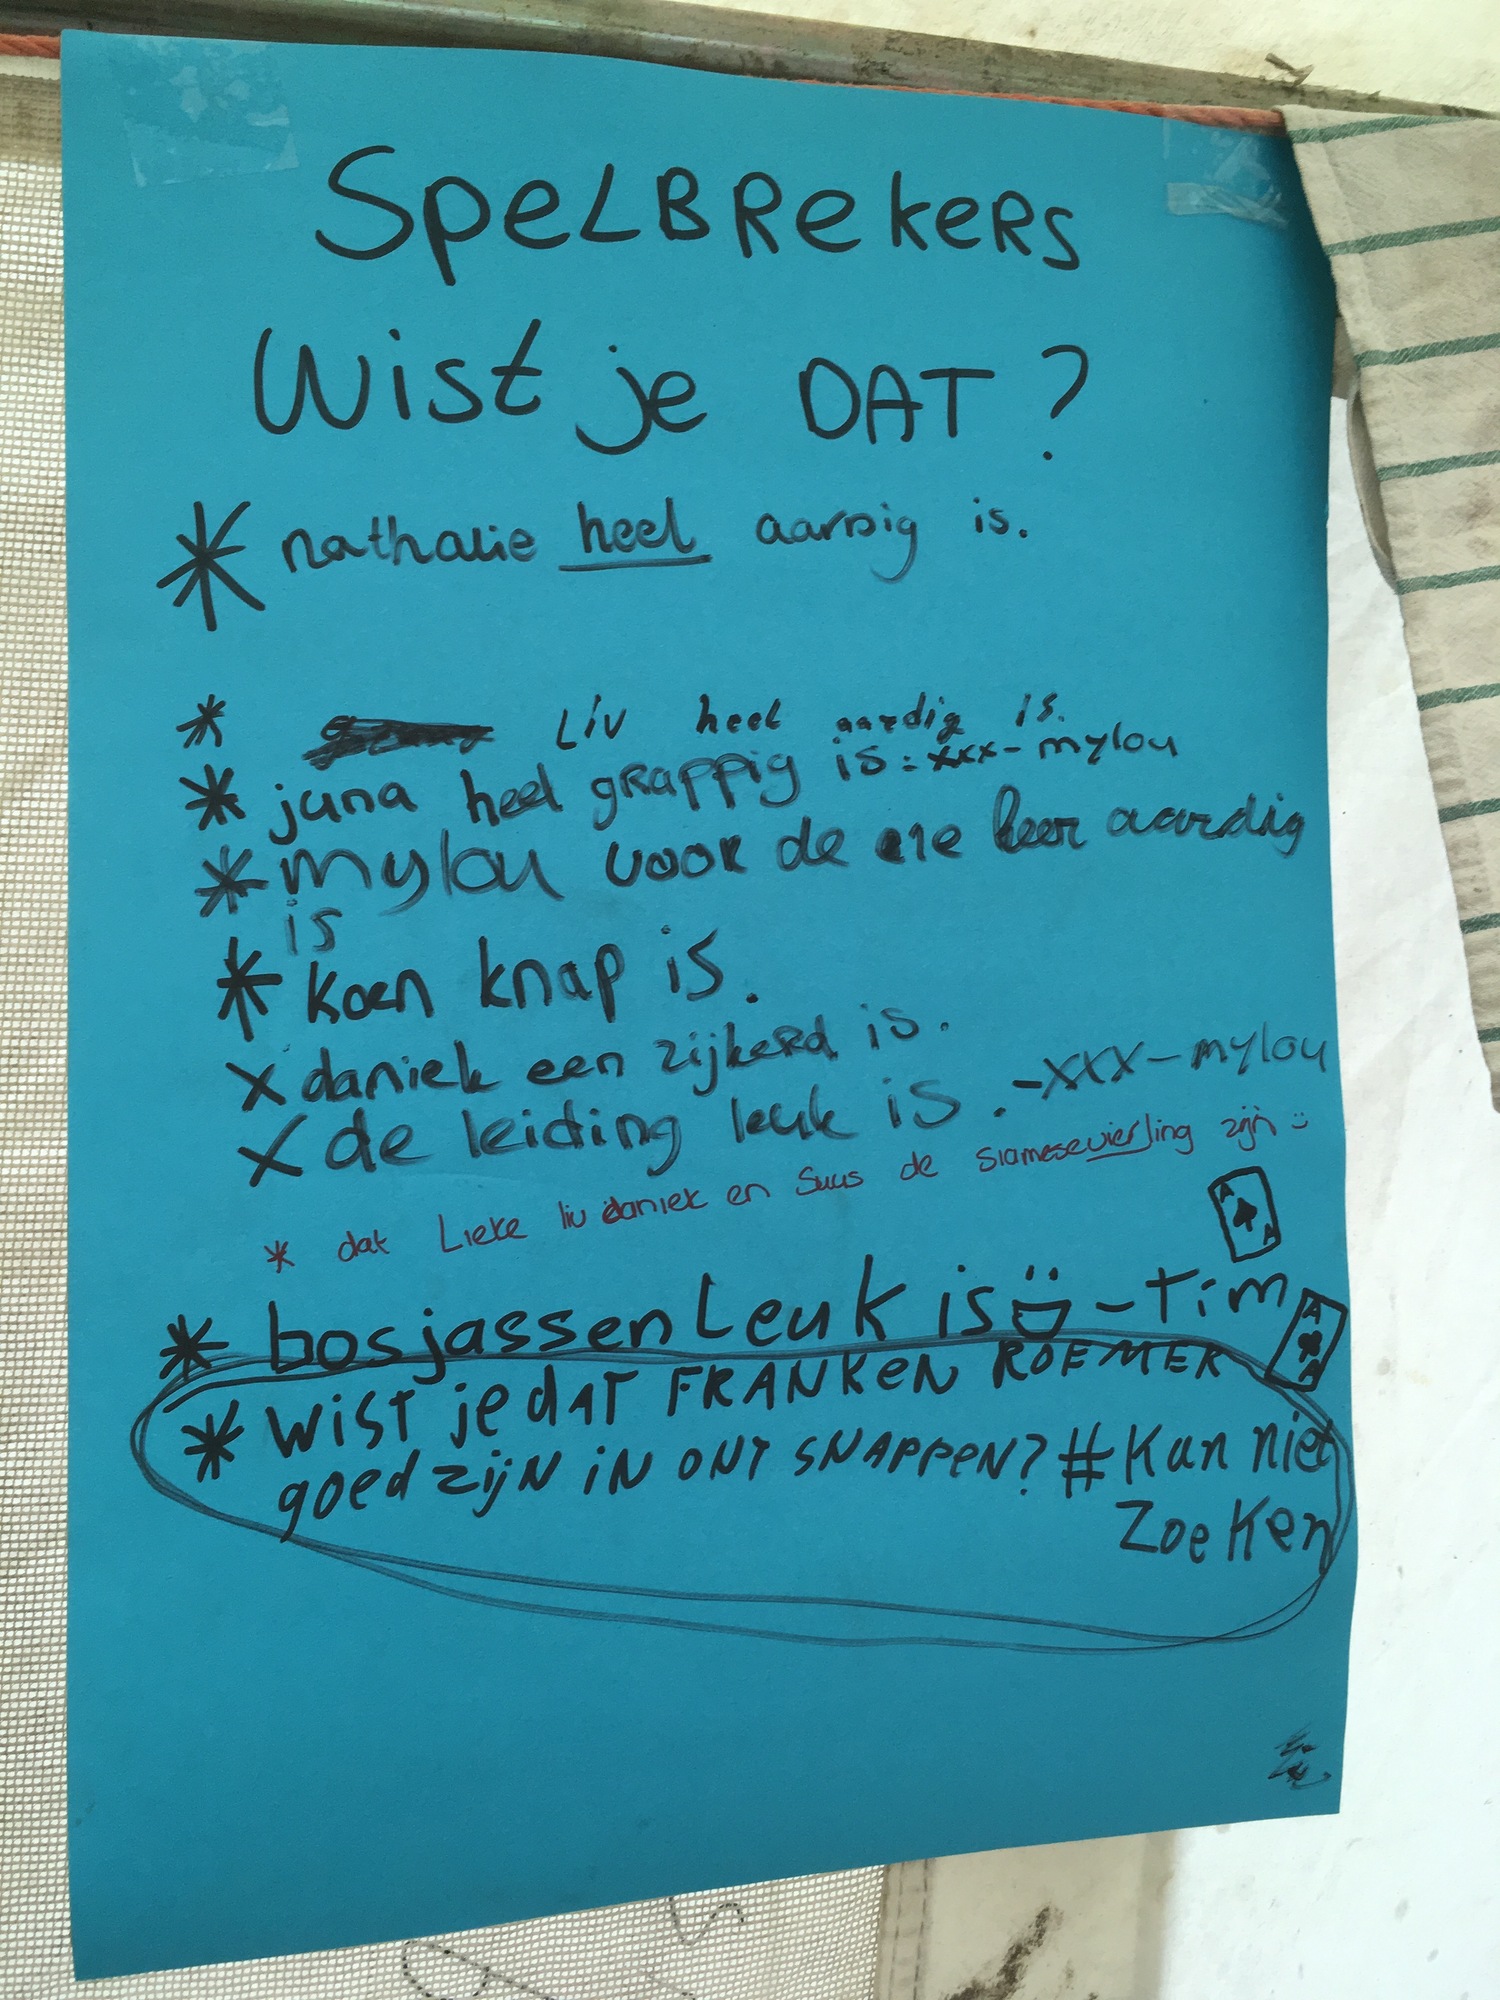 SpeLBRekeRS
Wist je DAT?
* nathalie heel aardig is.
* Liv heel aardig is.
* juna heel gRappig is. xxx- mylou
* mylou vooR de e1e keer aardig
is
* koen knap is.
x daniek een zijkeRd is.
x de leiding leuk is. -xxx- mylou
* dat Lieke liv daniek en Suus de Siamesevierling zijn :)
* bosjassen Leuk is - Tim
* WiST je dAT FRANK eN ROEMER
goed zijN iN ONT SNAPPeN? # Kan niet
Zoeken
A
A
A
A